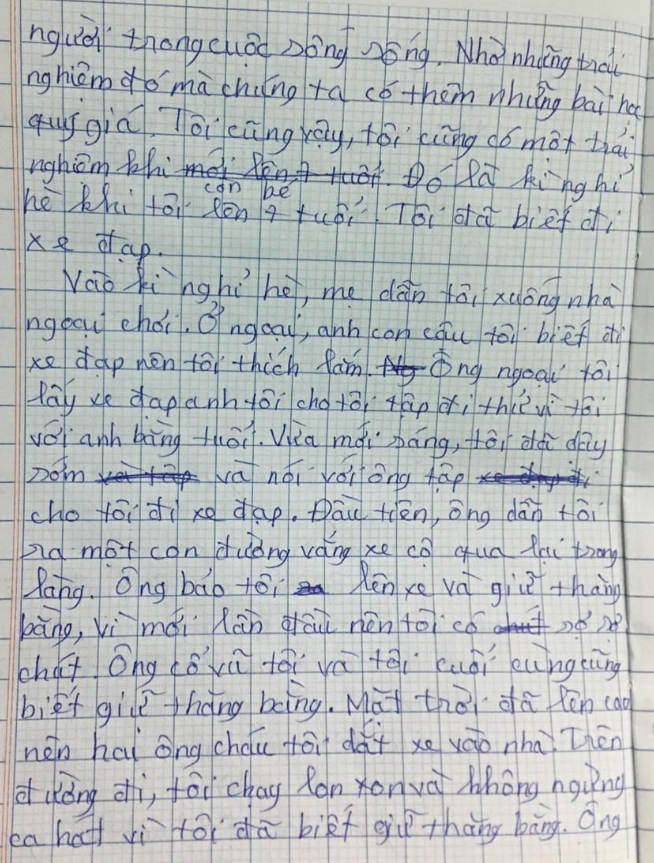 người trong cuộc sống sống. Nhờ những trải
nghiệm đó mà chúng ta có thêm những bài học
quý giá. Tôi cũng vậy, tôi cũng có một trải
nghiệm khi mới lên 7 tuổi. Đó là kì nghỉ
còn bé
hè khi tôi lên 7 tuổi. Tôi đã biết đi
xe đạp.
Vào kì nghỉ hè, mẹ dẫn tôi xuống nhà
ngoại chơi. Ở ngoại, anh con cậu tôi biết đi
xe đạp nên tôi thích lắm. Ng Ông ngoại tôi
lấy xe đạp anh tôi cho tôi tập đi thử vì tôi
với anh bằng tuổi. Vừa mới sáng, tôi đã dậy
sớm và tập và nói với ông tập xe đạp đi
cho tôi đi xe đạp. Đầu tiên, ông dẫn tôi
ra một con đường vắng xe cộ qua lại trong
làng. Ông bảo tôi lên xe và giữ thăng
bằng, vì mới lần đầu nên tôi có chút sợ sợ
chút. Ông cổ vũ tôi và tôi cuối cùng cũng
biết giữ thăng bằng. Mặt trời đã lên cao
nên hai ông cháu tôi dắt xe vào nhà. Trên
đường đi, tôi chạy lon xon và không ngừng
ca hát vì tôi đã biết giữ thăng bằng. Ông